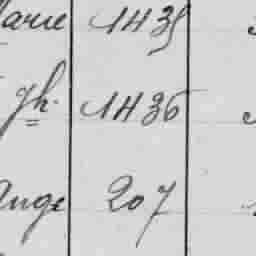 Marie 1435
Jh. 1436
Ange 207